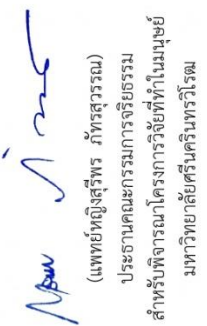 (แพทย์หญิงสุรีพร ภัทรสุวรรณ)
ประธานคณะกรรมการจริยธรรม
สำหรับพิจารณาโครงการวิจัยที่ทำในมนุษย์
มหาวิทยาลัยศรีนครินทรวิโรฒ